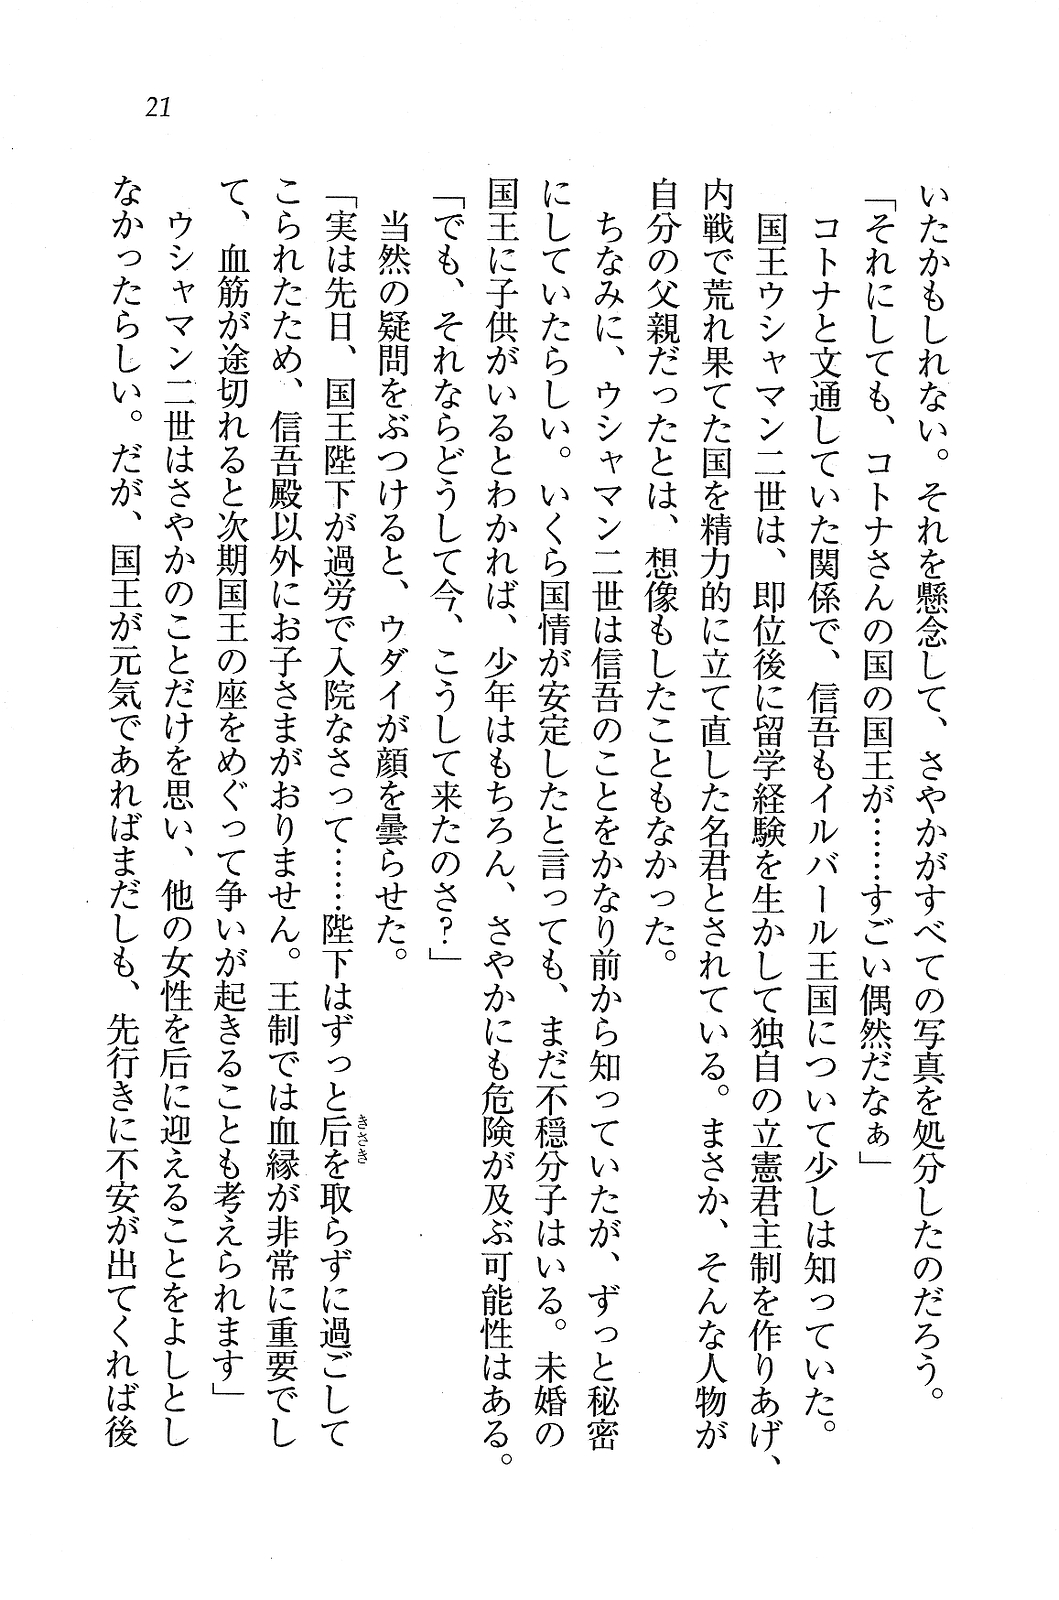 21
いたかもしれない。それを懸念して、さやかがすべての写真を処分したのだろう。
「それにしても、コトナさんの国の国王が……すごい偶然だなぁ」
コトナと文通していた関係で、信吾もイルバール王国について少しは知っていた。
国王ウシャマン二世は、即位後に留学経験を生かして独自の立憲君主制を作りあげ、
内戦で荒れ果てた国を精力的に立て直した名君とされている。まさか、そんな人物が
自分の父親だったとは、想像もしたこともなかった。
ちなみに、ウシャマン二世は信吾のことをかなり前から知っていたが、ずっと秘密
にしていたらしい。いくら国情が安定したと言っても、まだ不穏分子はいる。未婚の
国王に子供がいるとわかれば、少年はもちろん、さやかにも危険が及ぶ可能性はある。
「でも、それならどうして今、こうして来たのさ？」
当然の疑問をぶつけると、ウダイが顔を曇らせた。
「実は先日、国王陛下が過労で入院なさって……陛下はずっと后きさきを取らずに過ごして
こられたため、信吾殿以外にお子さまがおりません。王制では血縁が非常に重要でし
て、血筋が途切れると次期国王の座をめぐって争いが起きることも考えられます」
ウシャマン二世はさやかのことだけを思い、他の女性を后に迎えることをよしとし
なかったらしい。だが、国王が元気であればまだしも、先行きに不安が出てくれば後